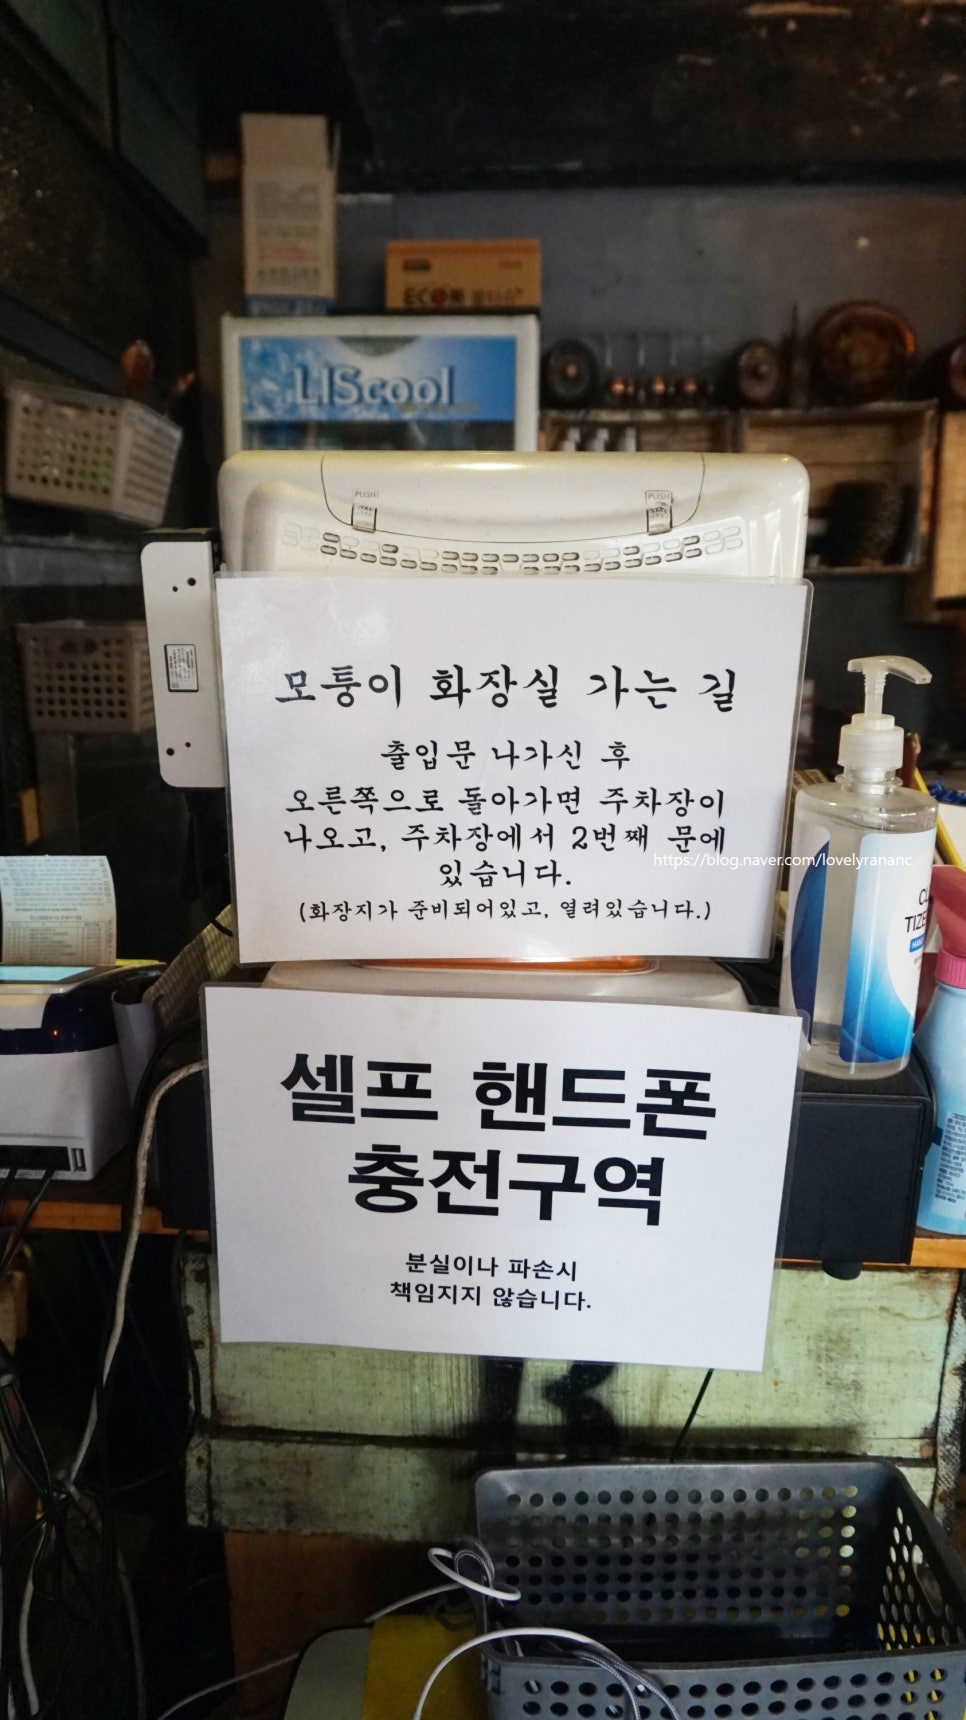 LIScool
PUSH
PUSH
모퉁이 화장실 가는 길
출입문 나가신 후
오른쪽으로 돌아가면 주차장이
나오고, 주차장에서 2번째 문에
있습니다.
(화장지가 준비되어있고, 열려있습니다.)
https://blog.naver.com/lovelyrananc
셀프 핸드폰
충전구역
분실이나 파손시
책임지지 않습니다.